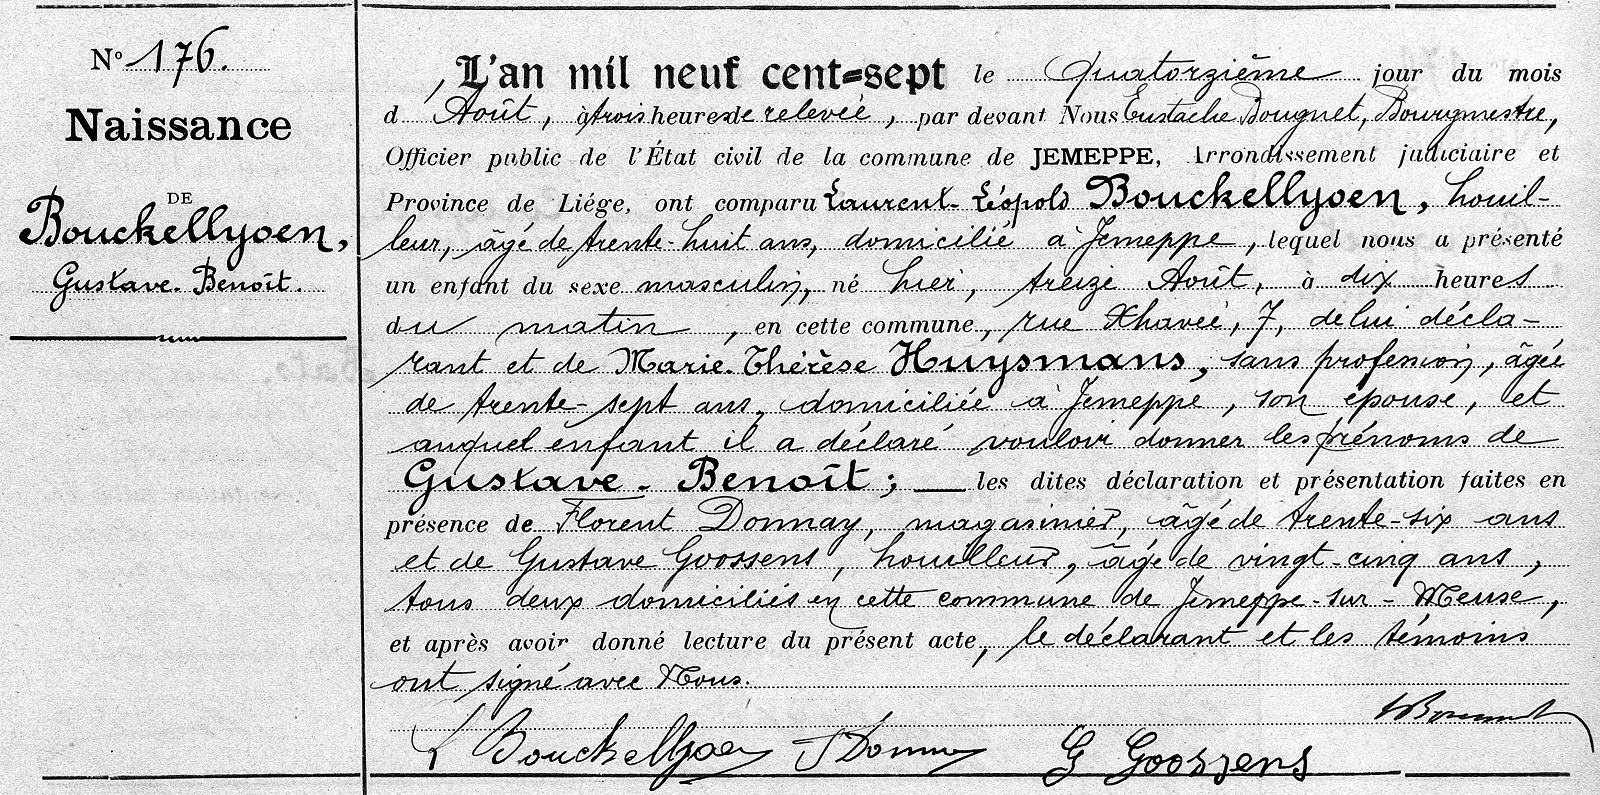 N° 176.
Naissance
DE
Bouckellyoen,
Gustave-Benoît.
L'an mil neuf cent-sept le Quatorzième jour du mois
d Août, à trois heures de relevée, par devant Nous Eustache Bougnet, Bourgmestre,
Officier public de l'État civil de la commune de JEMEPPE, Arrondissement judiciaire et
Province de Liége, ont comparu Laurent-Léopold Bouckellyoen, houil-
leur, âgé de trente-huit ans, domicilié à Jemeppe, lequel nous a présenté
un enfant du sexe masculin, né hier, treize Août, à dix heures
du matin, en cette commune, rue Xhavée, 7, de lui décla-
rant et de Marie-Thérèse Huysmans, sans profession, âgée
de trente-sept ans, domiciliée à Jemeppe, son épouse, et
auquel enfant il a déclaré vouloir donner les prénoms de
Gustave-Benoît; les dites déclaration et présentation faites en
présence de Florent Donnay, magasinier, âgé de trente-six ans
et de Gustave Goossens, houilleur, âgé de vingt-cinq ans,
tous deux domiciliés en cette commune de Jemeppe-sur-Meuse,
et après avoir donné lecture du présent acte, le déclarant et les témoins
ont signé avec Nous.
L Bouckellyoen Donnay G Goossens